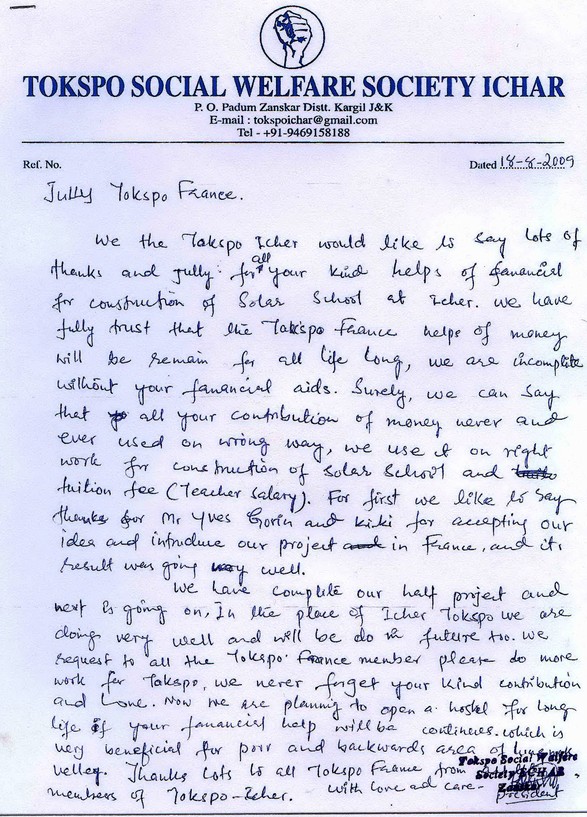 TOKSPO SOCIAL WELFARE SOCIETY ICHAR
P. O. Padum Zanskar Distt. Kargil J&K
E-mail : tokspoichar@gmail.com
Tel - +91-9469158188
Ref. No.
Dated 18-8-2009
Jully Tokspo France.
We the Tokspo Icher would like to say lots of
thanks and jully for all your kind helps of fanancial
for construction of Solar School at Icher. we have
fully trust that the Tokspo France helps of money
will be remain for all life long, we are incomplete
without your fanancial aids. Surely, we can say
that all your contribution of money never and
ever used on wrong way, we use it on right
work for construction of Solar School and
tuition fee (Teacher salary). For first we like to say
thanks for Mr Yves Gorin and kiki for accepting our
idea and introduce our project in France, and its
result was going very well.
We have complete our half project and
next is going on, In the place of Icher Tokspo we are
doing very well and will be do in future too. we
request to all the Tokspo France member please do more
work for Tokspo, we never forget your kind contribution
and Love. Now we are planning to open a hostel for long
life if your fanancial help will be continues. which is
very beneficial for poor and backwards area of
velley. Thanks lots to all Tokspo France from
members of Tokspo-Icher. With Love and care-
Tokspo Social Welfare
Society ICHAR
Zanskar
President